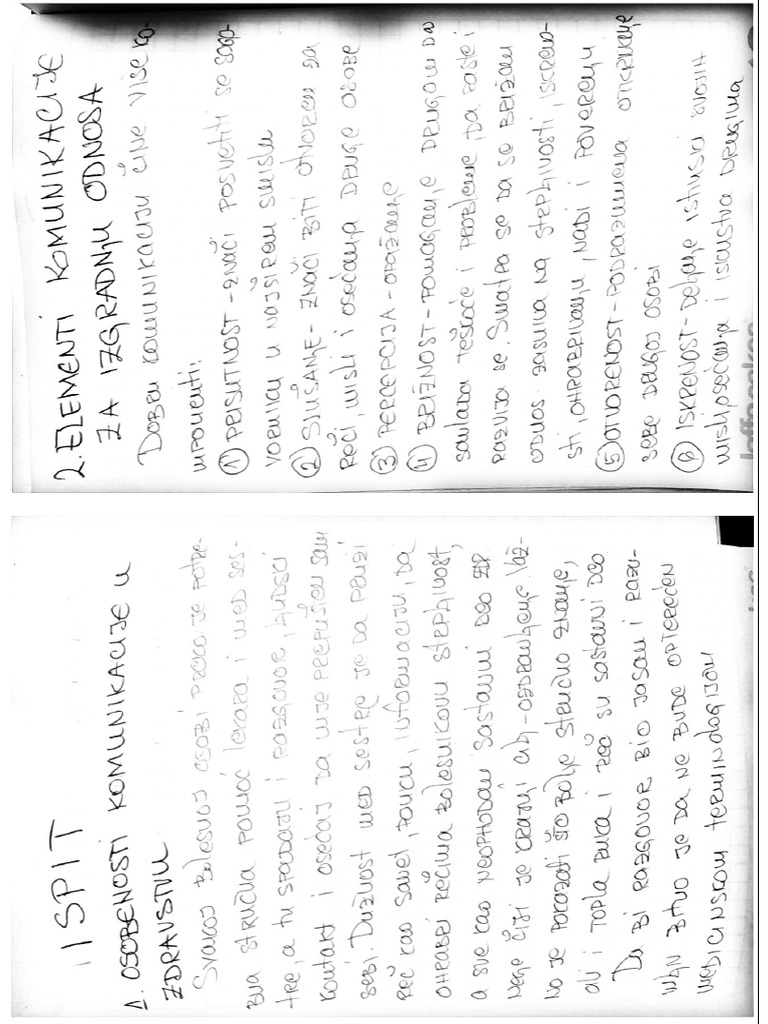 I ISPIT
1. OSOBENOSTI KOMUNIKACIJE U
ZDRAVSTVU
Svakoj bolesnoj osobi preko je potre-
bna stručna pomoć lekara i med ses-
tre, a tu spadaju i razgovor, ljudski
kontakt i osećaj da nije prepušten sam
sebi. Dužnost med sestre je da pruži
reč kao savet, pouku, informaciju, da
ohrabri rečima bolesnikovu strpljivost,
a sve kao neophodan sastavni deo zdr
nege čiji je krajnji cilj-ozdravljenje. Važ-
no je pokazati što bolje stručno znanje,
ali i topla ruka i reč su sastavni deo
Da bi razgovor bio jasan i razu-
mljiv bitno je da ne bude opterećen
medicinskom terminologijom
2. ELEMENTI KOMUNIKACIJE
ZA IZGRADNJU ODNOSA
Dobru komunikaciju čine više ko-
mponenti:
① PRISUTNOST-znači posvetiti se sago-
vorniku u najširem smislu
② SLUŠANJE- znači biti otvoren za
reči, misli i osećanja druge osobe
③ PERCEPCIJA-opažanje
④ BRIŽNOST-pomaganje drugom da
savlada teškoće i probleme, da raste i
razvija se. Smatra se da se brižan
odnos zasniva na strpljivosti, iskreno-
sti, ohrabrivanju, nadi i poverenju
⑤ OTVORENOST-podrazumeva otkrivanje
sebe drugoj osobi
⑥ ISKRENOST-deljenje istinski svojih
misli, osećanja i iskustva drugima